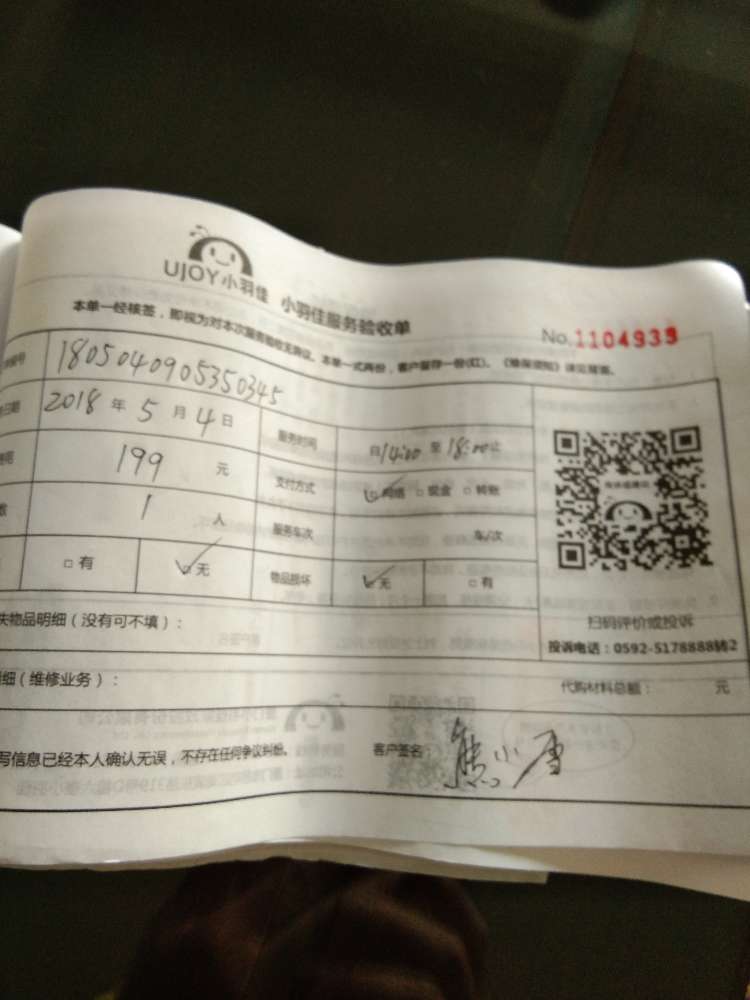 UJOY小羽佳 小羽佳服务验收单
No.1104939
本单一经核签，即视为对本次服务验收无异议。本单一式两份，客户留存一份(红)。《维保须知》详见背面。
编号 1805040905350345
日期 2018 年 5 月 4 日 服务时间 自14:00 至 18:00止
199 元 支付方式 网络 □ 现金 □ 转账
数 1 人 服务车次 车/次
□ 有 □ 无 物品损坏 □ 无 □ 有
扫码评价或投诉
投诉电话：0592-5178888转2
失物品明细（没有可不填）：
细（维修业务）： 代购材料总额： 元
写信息已经本人确认无误，不存在任何争议纠纷。 客户签名： 熊小